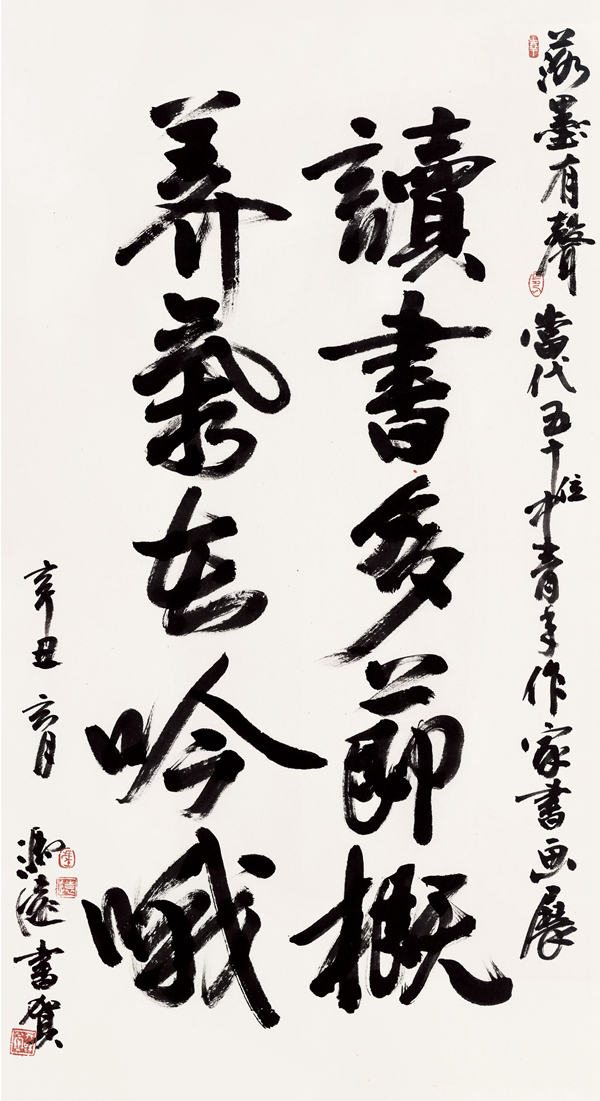 落墨有聲 當代五十位中青年作家書画展
讀書多節概
养氣在吟哦
辛丑 月
書賀